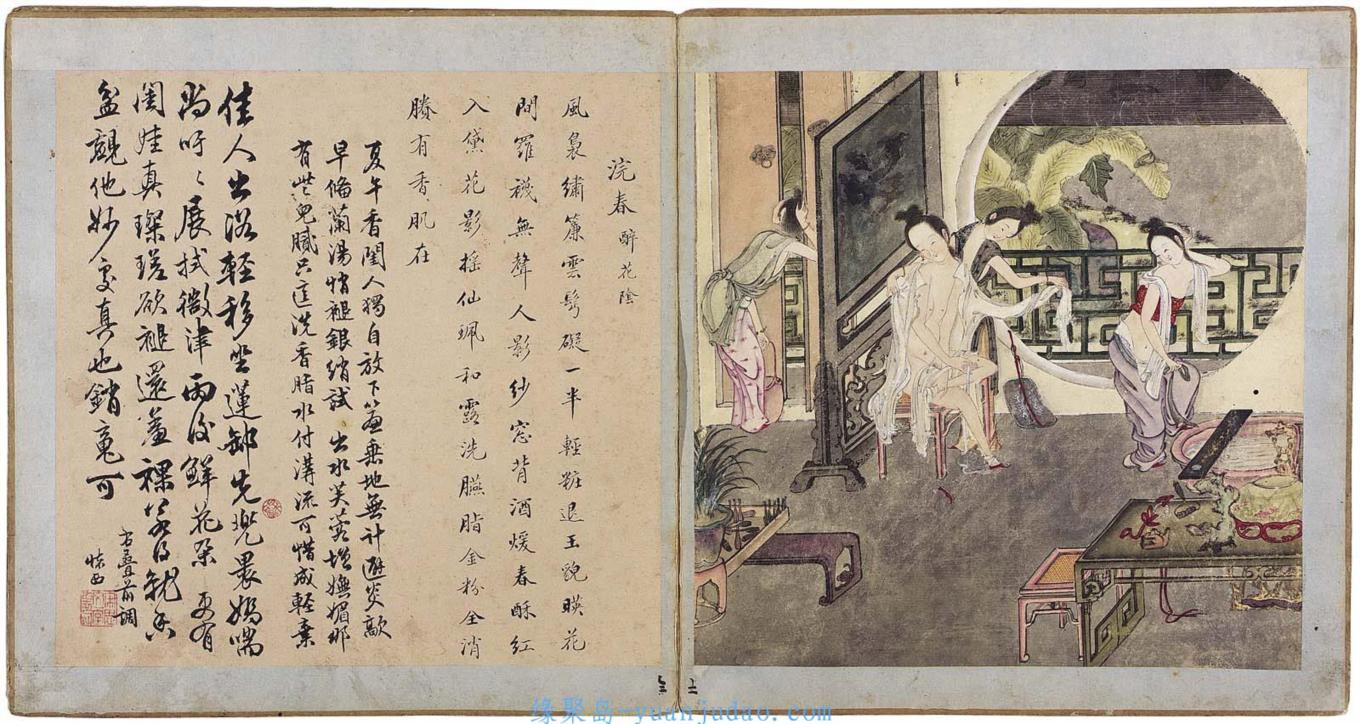 浣春 醉花陰
風裊繡簾雲髩礙一半輕粧退玉貌暎花
間羅襪無聲人影紗窓背酒煖春酥紅
入黛花影搖仙珮和露洗臙脂金粉全消
賸有香肌在
夏午香閨人獨自放下簾垂地無計避炎歊
早偹蘭湯悄褪銀綃試 出水芙蓉增嫵媚那
有些兒膩只這洗香脂水付溝流可惜成輕棄
佳人出浴輕移坐蓮鉤先兜裹嬌喘
尚吁〻展拭微津雨後鮮花朶 更有
閨娃真璨瑳欲褪還羞裸若得親香
盆覷他妙處真也銷䰟可
右疊前調
缘聚岛-yuanjudao.com